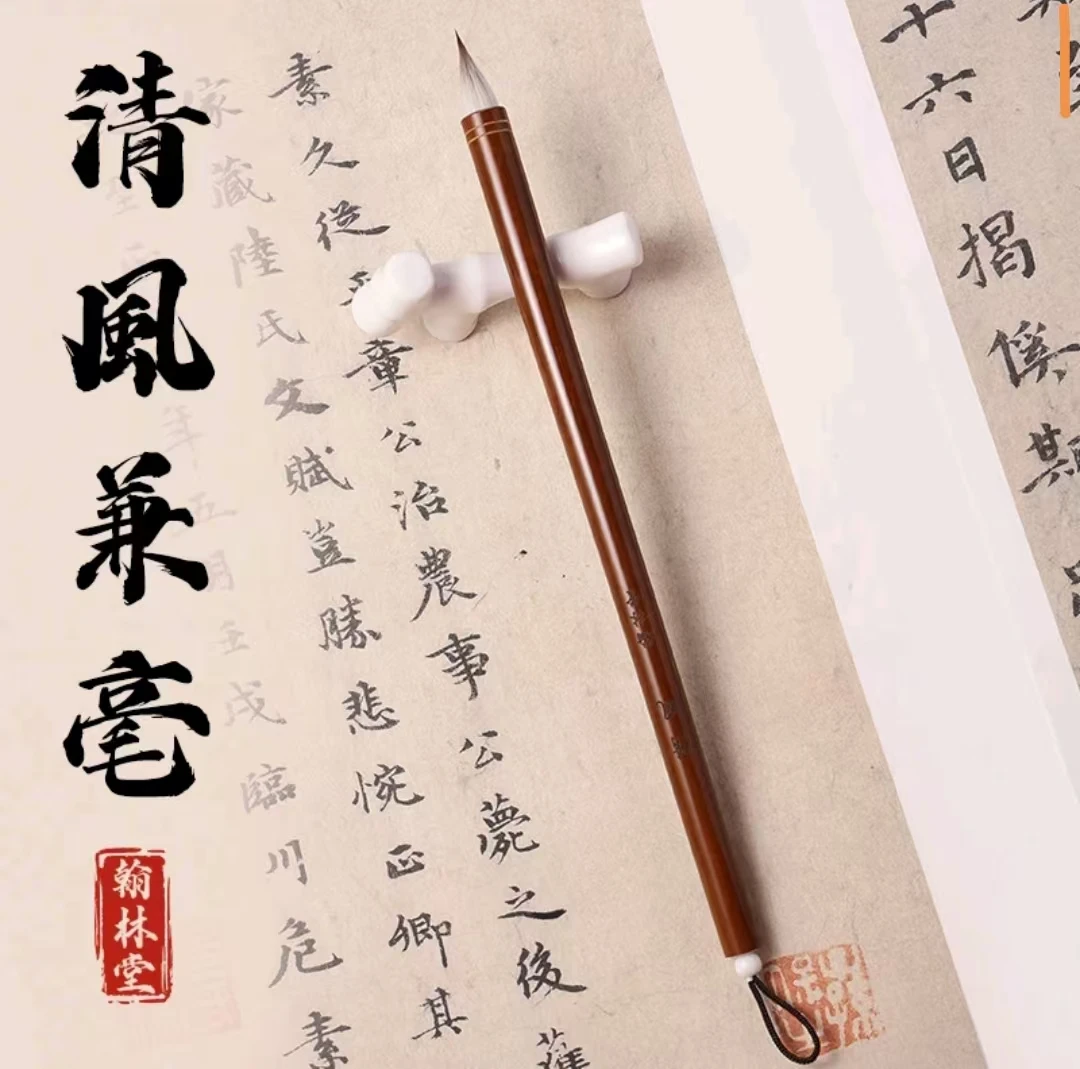 清風兼毫
翰林堂
十六日揭傒
素久從章公治農事公薨之後
家藏陸氏文賦豈勝悲惋正卿其
年五月壬戌臨川危素